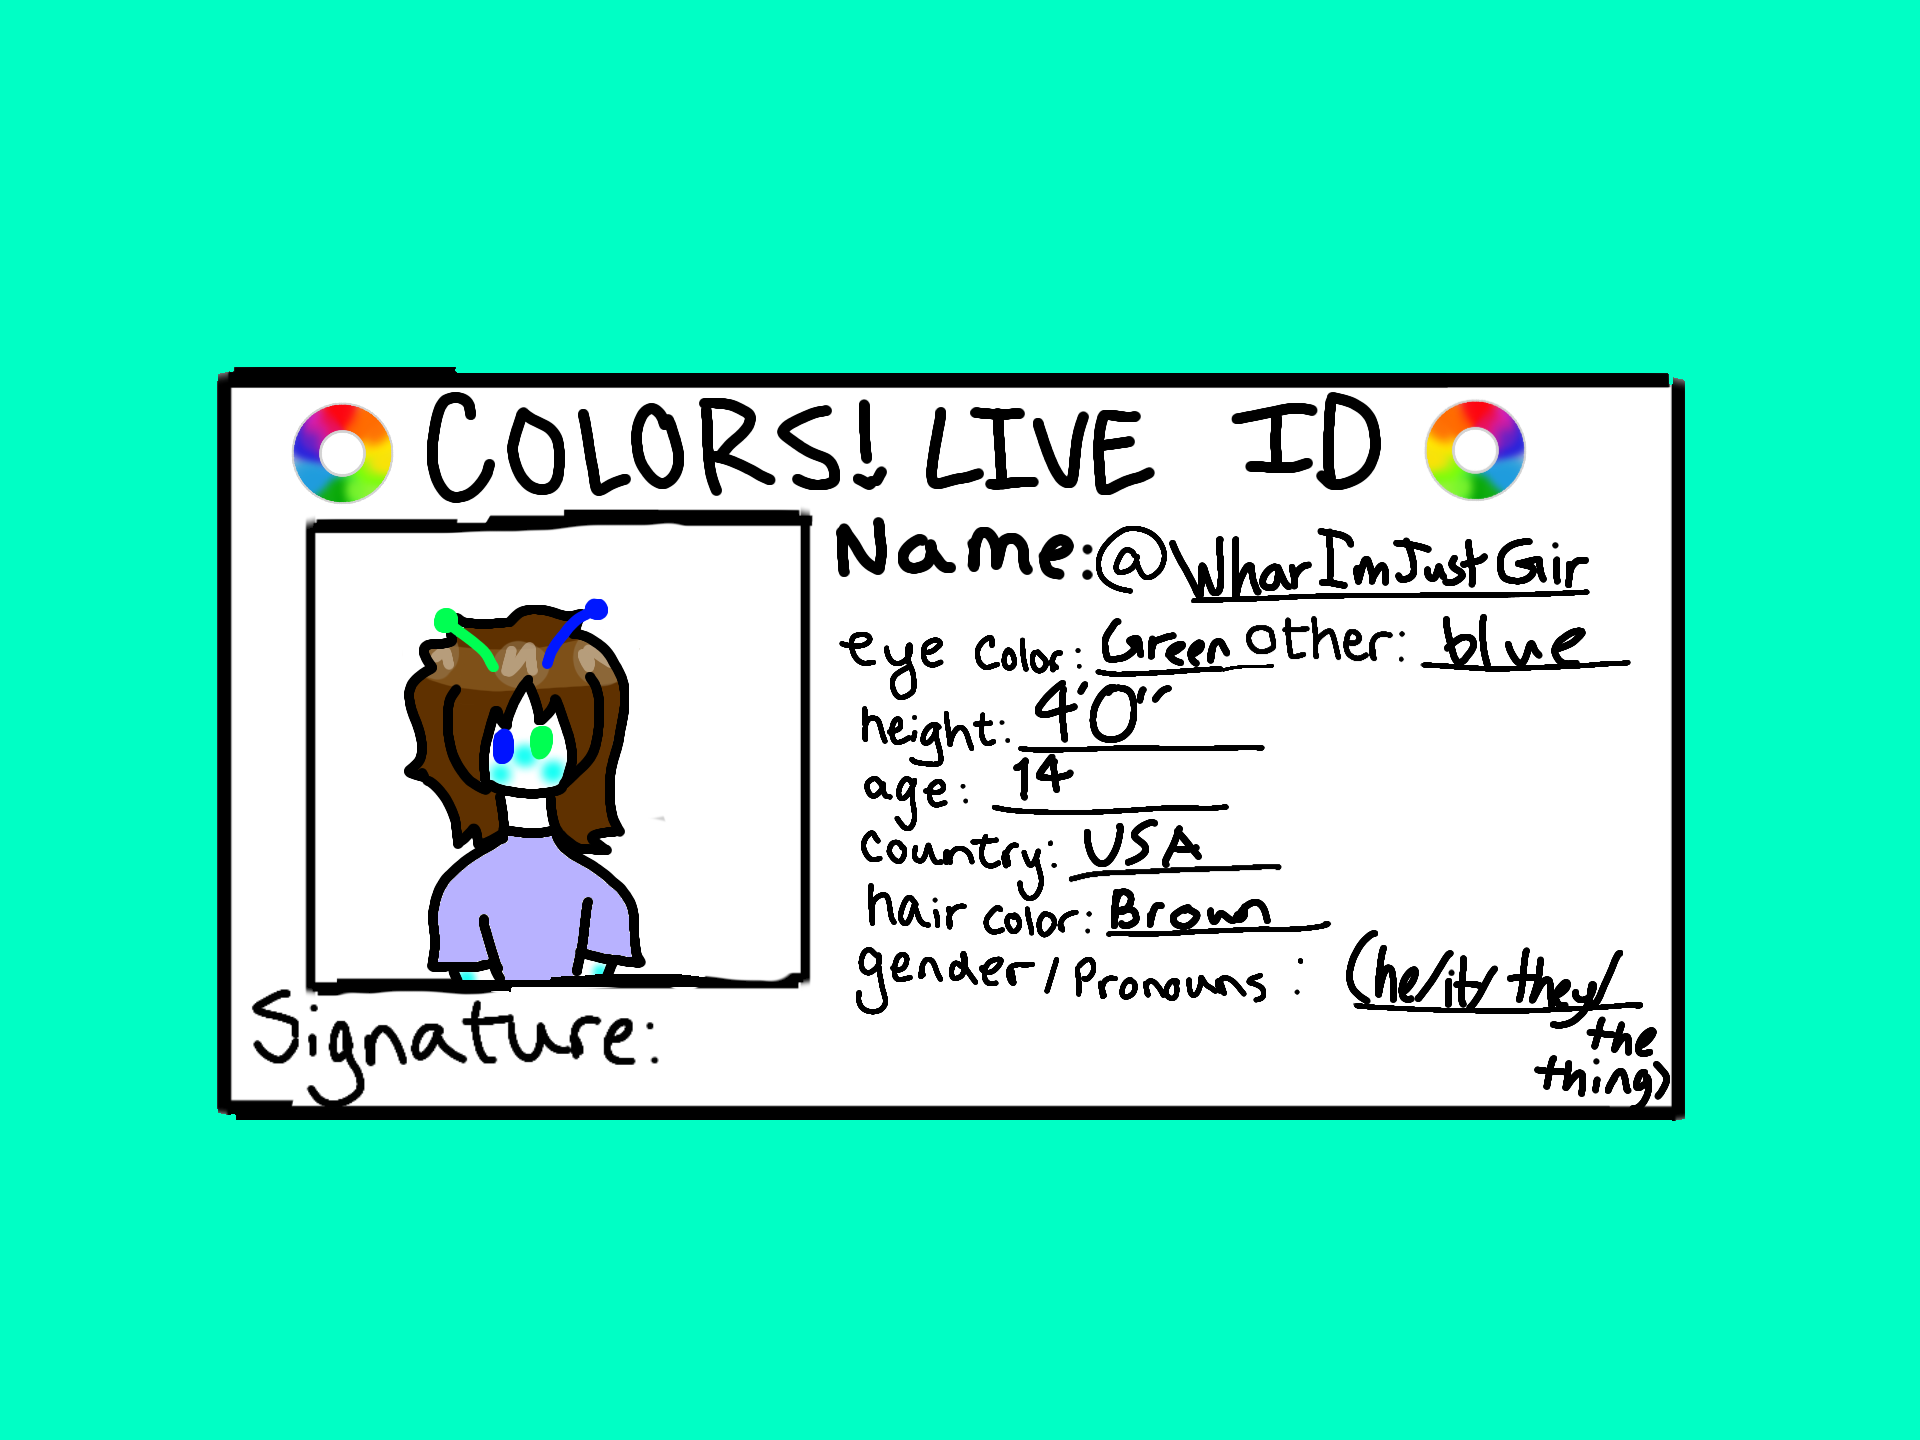 COLORS! LIVE ID
Name: @WharImJustGir
eye color: Green Other: blue
height: 4'0"
age: 14
country: USA
hair color: Brown
gender/Pronouns: (he/it/they/
the
thing)
Signature: